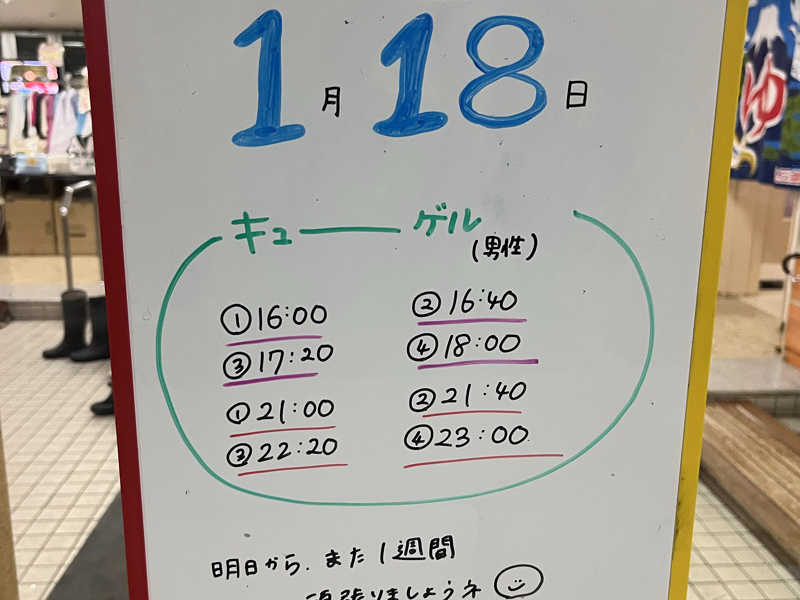 1月18日
キューゲル
(男性)
①16:00 ②16:40
③17:20 ④18:00
①21:00 ②21:40
③22:20 ④23:00
明日から、また1週間
頑張りましょうネ
ゆ